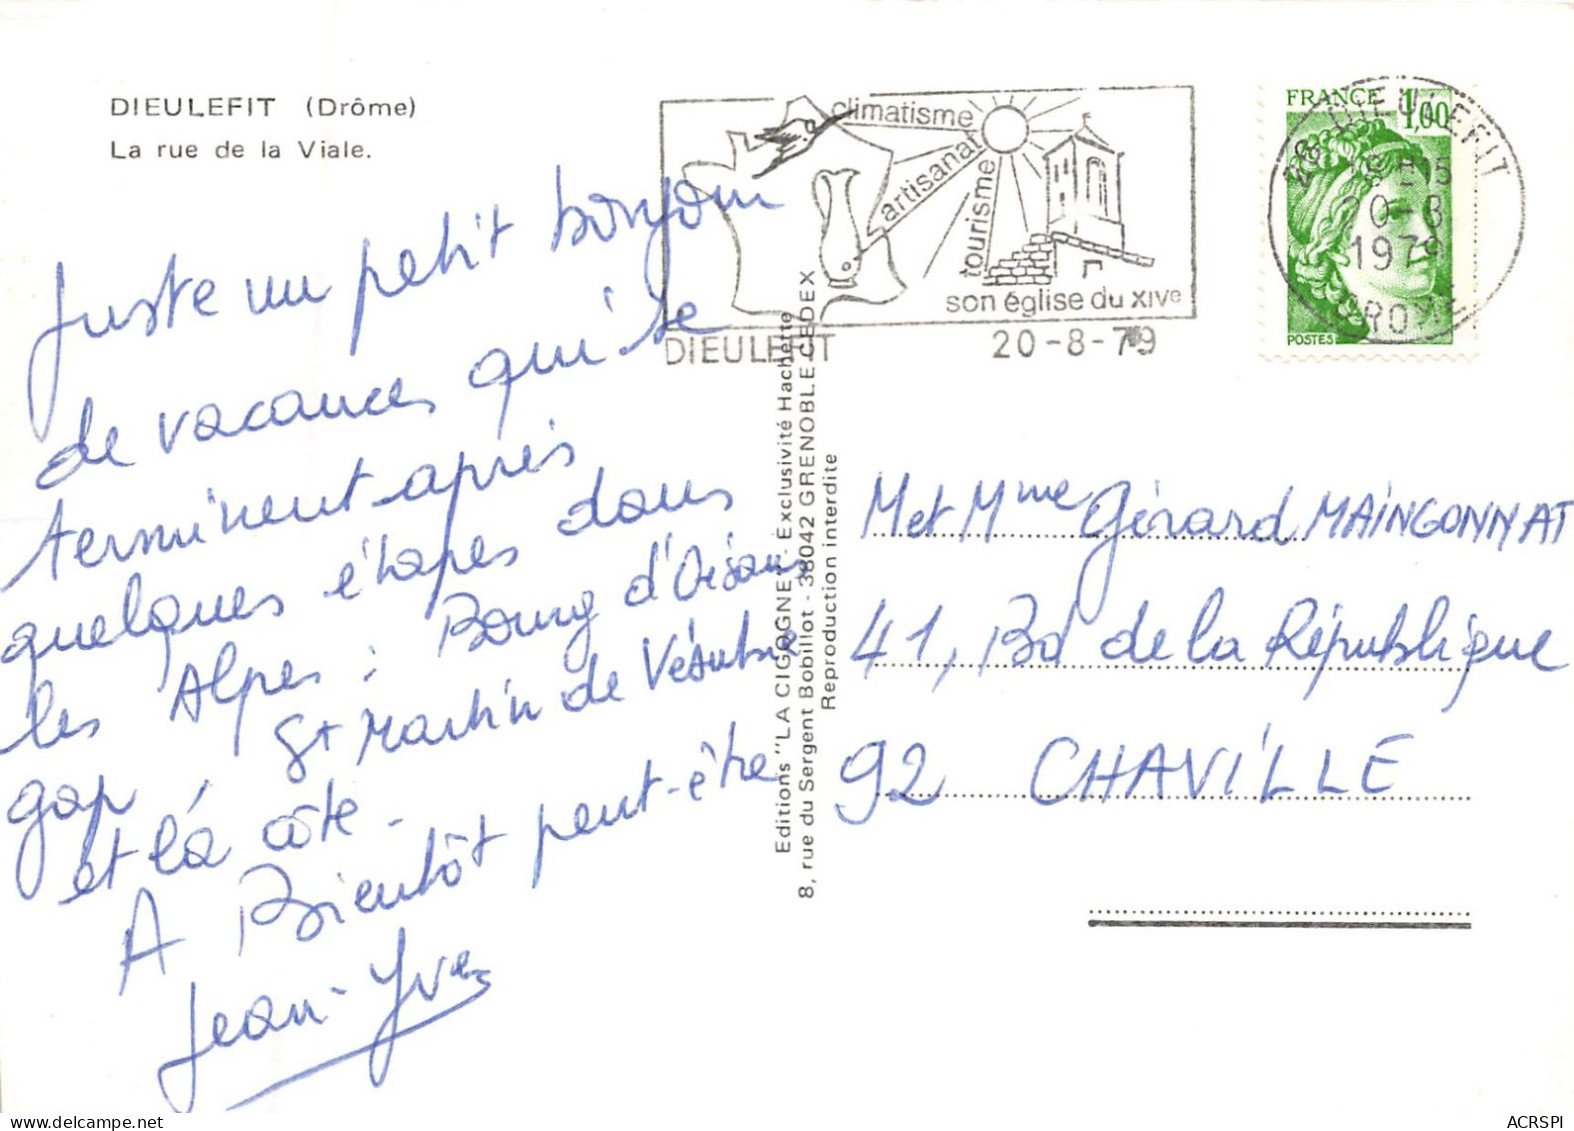 DIEULEFIT (Drôme)
La rue de la Viale.
Juste un petit bonjour
de vacances qui se
terminent après
quelques étapes dans
les Alpes : Bourg d'Oisans
Gap, St Martin de Vésubie
et la côte.
A Bientôt peut-être
Jean-Yves
climatisme
artisanat
tourisme
son église du XIVe
DIEULEFIT 20-8-79
FRANCE 1,00
POSTES
26 DIEULEFIT
20-8
1979
DROME
Editions "LA CIGOGNE" - Exclusivité Hachette
8, rue du Sergent Bobillot - 38042 GRENOBLE CEDEX
Reproduction interdite
M et Mme Gérard MAINGONNAT
41, Bd de la République
92 CHAVILLE
ACRSPI